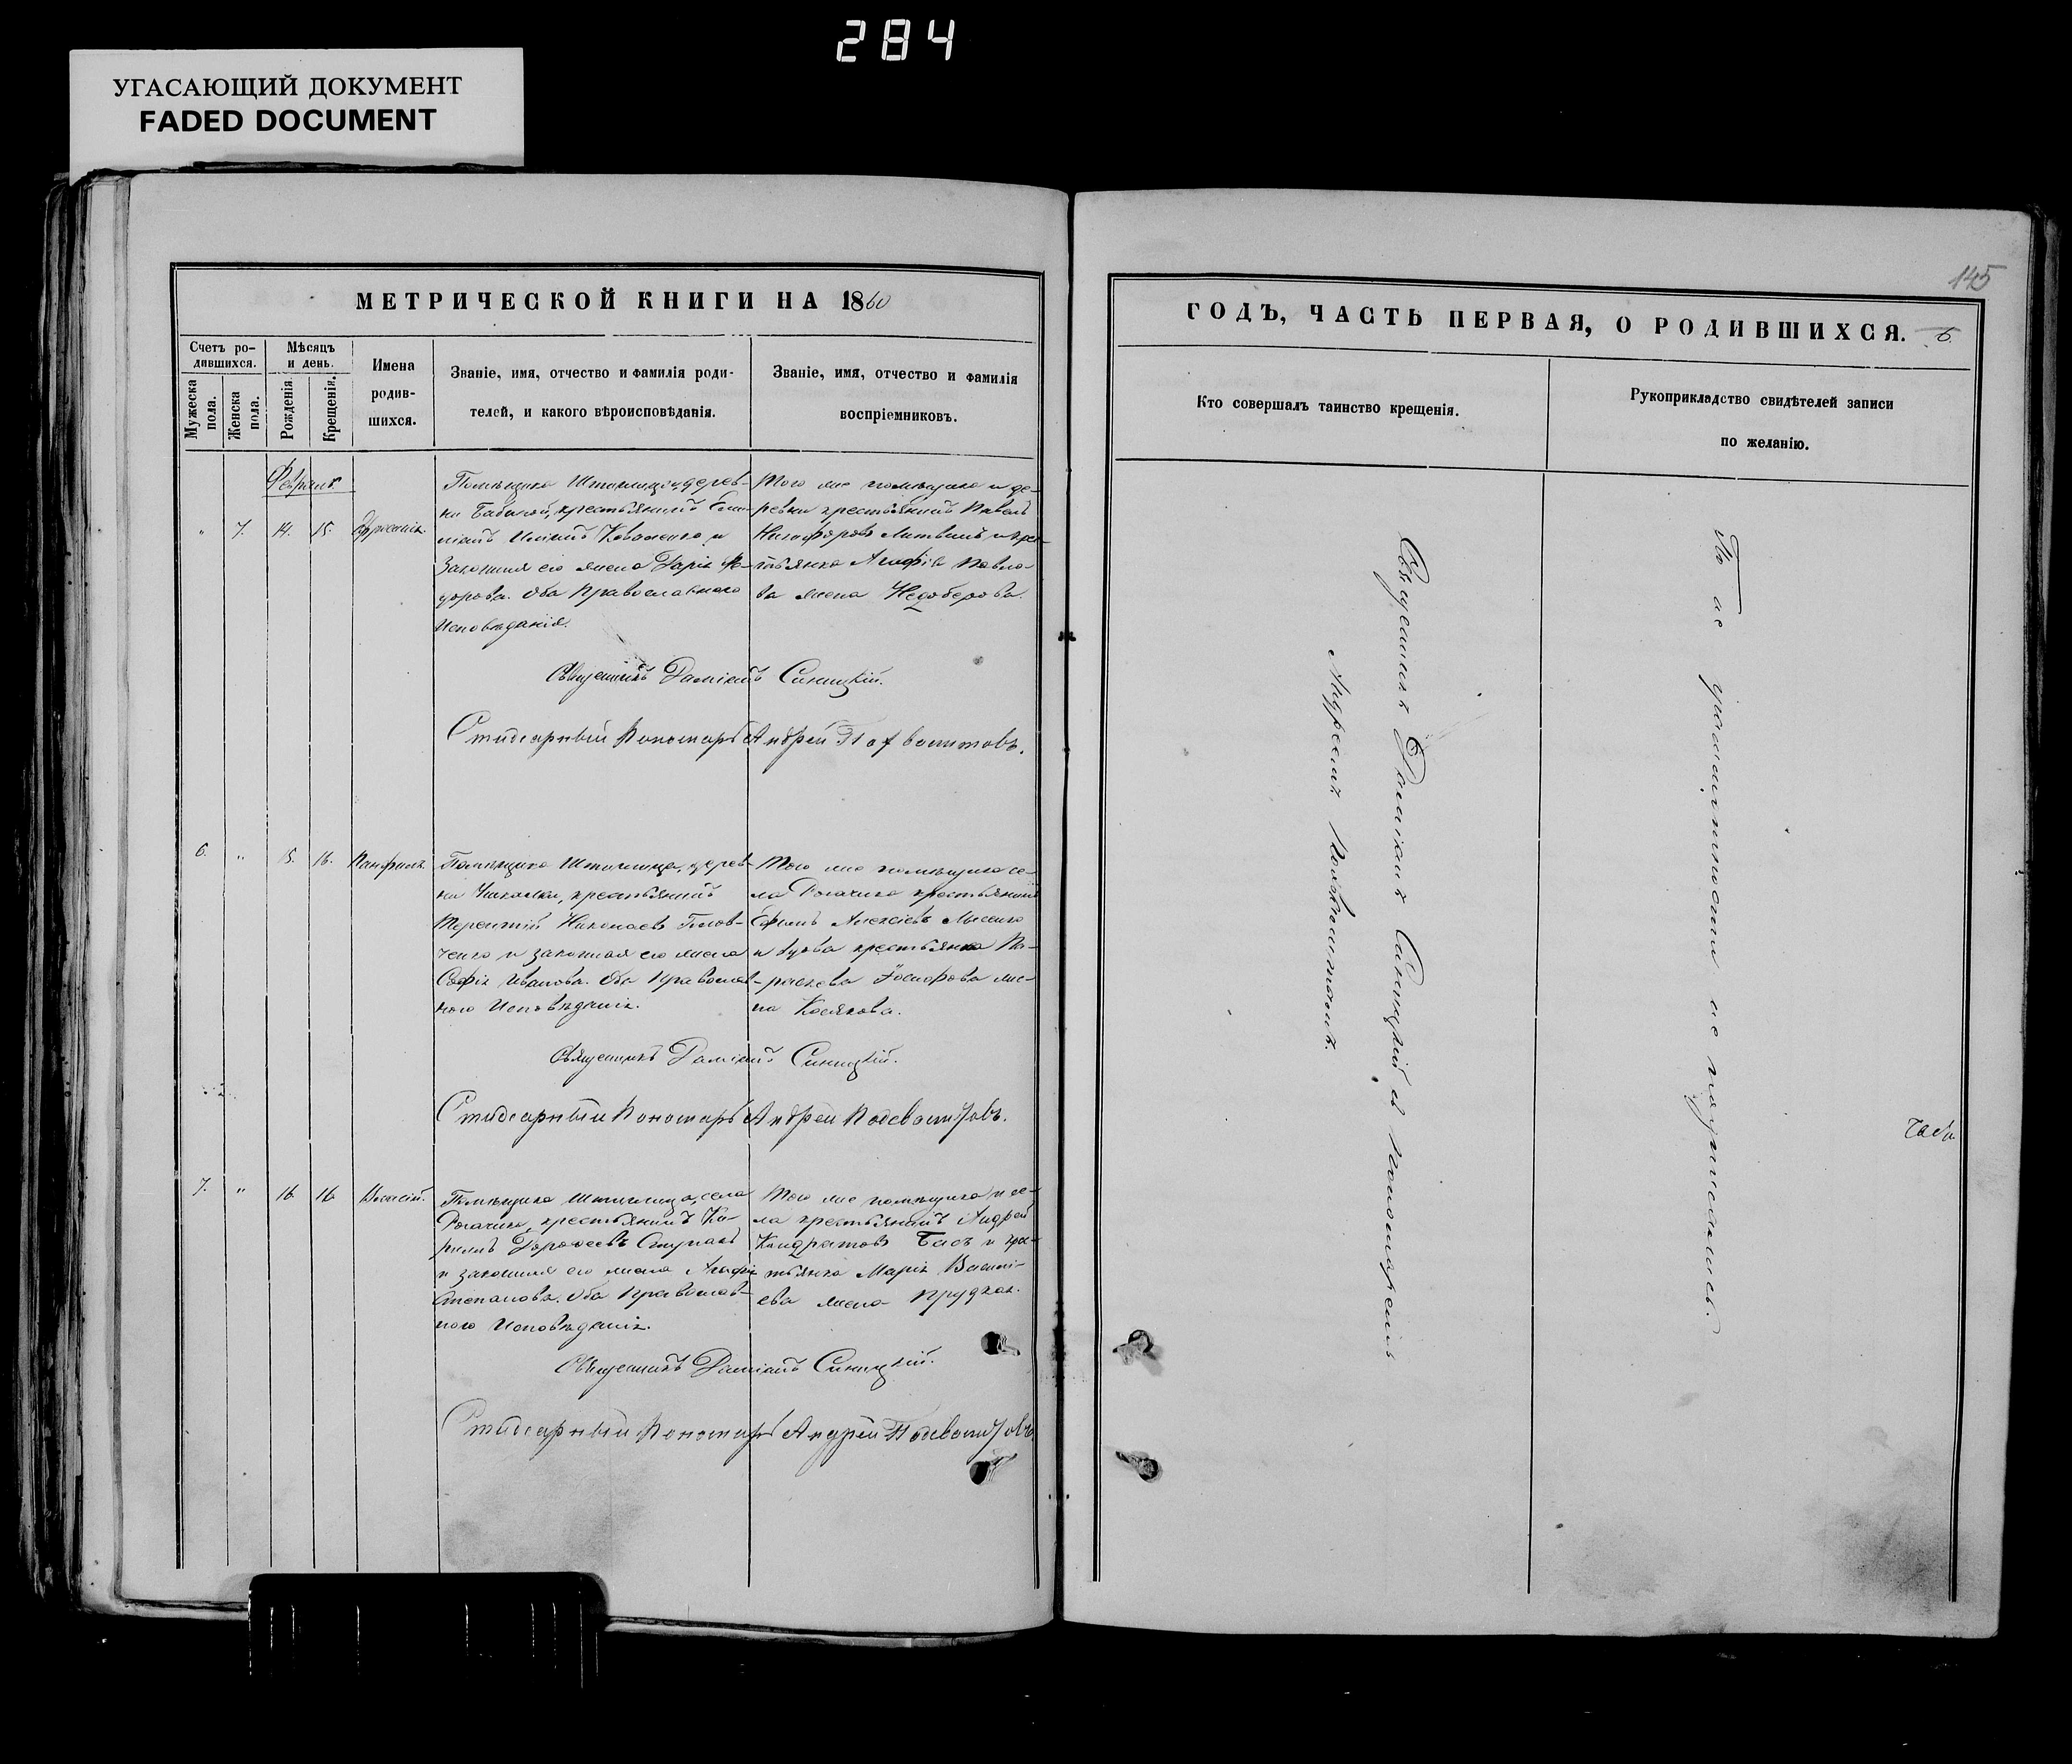 284
УГАСАЮЩИЙ ДОКУМЕНТ
FADED DOCUMENT
МЕТРИЧЕСКОЙ КНИГИ НА 1860
Счетъ ро-
дившихся.
Мужеска пола.
Женска пола.
Мѣсяцъ
и день.
Рожденія.
Крещенія.
Имена
родив-
шихся.
Званіе, имя, отчество и фамилія роди-
телей, и какого вѣроисповѣданія.
Званіе, имя, отчество и фамилія
воспріемниковъ.
Февраль
" 7. 14. 15.
Помѣщика Штиглица, дерев-
ни крестьянинъ
Коваленко и
Законная его жена Дарія Ѳе-
дорова. Оба Православнаго
Исповѣданія.
Того же помѣщика и де-
ревни крестьянинъ Павелъ
Никифоровъ Литвинъ и кре-
стьянка Агафія Павло-
ва жена
Священникъ Даміанъ Синицкій.
Стихарный Пономарь Андрей
6. " 15. 16. Панфилъ.
Помѣщика Штиглица, дерев-
ни Чикалки, крестьянинъ
Терентій Николаевъ Голов-
ченко и законная его жена
Софія Иванова. Оба Православ-
ного Исповѣданія.
Того же помѣщика се-
ла Рогачика крестьянинъ
Ефимъ Алексіевъ Лысенко
и вдова крестьянка Па-
раскева Іосифова же-
на Косякова.
Священникъ Даміанъ Синицкій.
Стихарный Пономарь Андрей
7. " 16 16 Власій.
Помѣщика Штиглица, села
Рогачика, крестьянинъ Ки-
рилъ Дорофеевъ
и законная его жена Агафія
Степанова. Оба Православ-
ного Исповѣданія.
Того же помѣщика и се-
ла крестьянинъ Андрей
Кондратовъ Басъ и кре-
стьянка Марія Василі-
ева жена
Священникъ Даміанъ Синицкій.
Стихарный Пономарь Андрей
145
ГОДЪ, ЧАСТЬ ПЕРВАЯ, О РОДИВШИХСЯ.
6.
Кто совершалъ таинство крещенія.
Рукоприкладство свидѣтелей записи
по желанію.
Священникъ Даміанъ Синицкій съ пономаремъ
Андреемъ
По не грамотности не подписались.